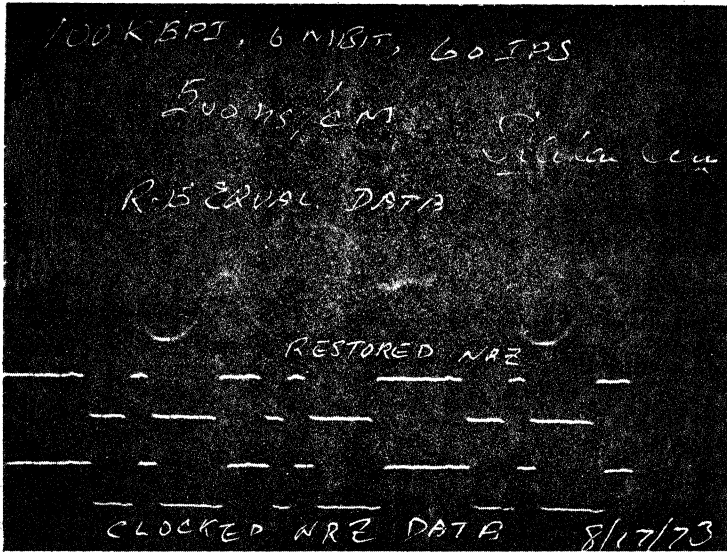 100KBPI, 6 MBIT, 60 IPS
500 ns/CM
R-B EQUAL. DATA
RESTORED NRZ
CLOCKED NRZ DATA 8/17/73